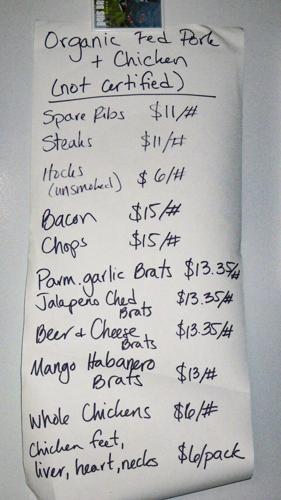 Organic Fed Pork
+ Chicken
(not certified)
Spare Ribs $11/#
Steaks $11/#
Hocks (unsmoked) $6/#
Bacon $15/#
Chops $15/#
Parm. garlic Brats $13.35/#
Jalapeno Ched Brats $13.35/#
Beer & Cheese Brats $13.35/#
Mango Habanero Brats $13/#
Whole Chickens $6/#
Chicken feet,
liver, heart, necks $6/pack